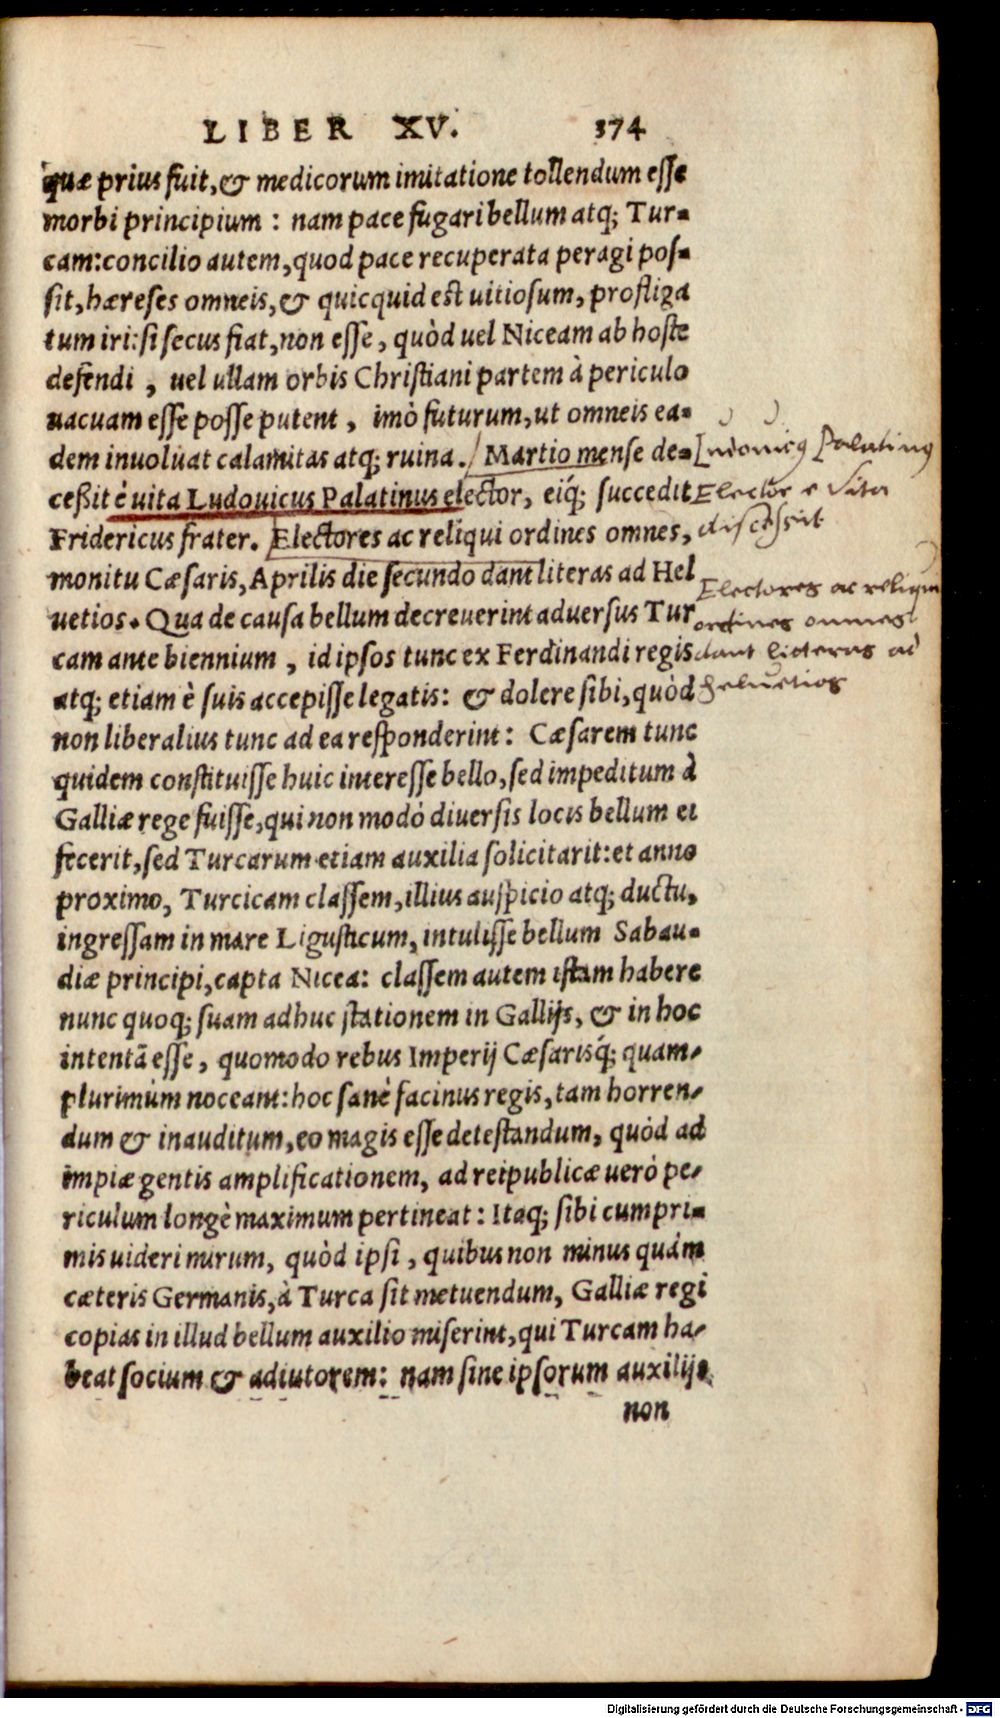 LIBER XV. 374
quæ prius fuit, & medicorum imitatione tollendum esse
morbi principium : nam pace fugari bellum atq; Tur-
cam: concilio autem, quod pace recuperata peragi pos-
sit, hæreses omneis, & quicquid est uitiosum, profliga
tum iri: si secus fiat, non esse, quòd uel Niceam ab hoste
defendi , uel ullam orbis Christiani partem à periculo
uacuam esse posse putent , imò futurum, ut omneis ea-
dem inuoluat calamitas atq; ruina. Martio mense de-
ceßit è uita Ludouicus Palatinus elector, eiq́; succedit
Fridericus frater. Electores ac reliqui ordines omnes,
monitu Cæsaris, Aprilis die secundo dant literas ad Hel
uetios. Qua de causa bellum decreuerint aduersus Tur
cam ante biennium , id ipsos tunc ex Ferdinandi regis
atq; etiam è suis accepisse legatis: & dolere sibi, quòd
non liberalius tunc ad ea responderint: Cæsarem tunc
quidem constituisse huic interesse bello, sed impeditum à
Galliæ rege fuisse, qui non modò diuersis locis bellum ei
fecerit, sed Turcarum etiam auxilia solicitarit: et anno
proximo, Turcicam classem, illius auspicio atq; ductu,
ingressam in mare Ligusticum, intulisse bellum Sabau-
diæ principi, capta Nicea: classem autem istam habere
nunc quoq; suam adhuc stationem in Gallijs, & in hoc
intentā esse , quomodo rebus Imperij Cæsarisq́; quam-
plurimùm noceant: hoc sanè facinus regis, tam horren-
dum & inauditum, eo magis esse detestandum, quòd ad
impiæ gentis amplificationem, ad reipublicæ uerò pe-
riculum longè maximum pertineat: Itaq; sibi cumpri-
mis uideri mirum, quòd ipsi , quibus non minus quàm
cæteris Germanis, à Turca sit metuendum, Galliæ regi
copias in illud bellum auxilio miserint, qui Turcam ha-
beat socium & adiutorem: nam sine ipsorum auxilijs
non
Ludouicus Palatinus
Elector e vita
discessit
Electores ac reliqui
ordines omnes
dant literas ad
helvetios
Digitalisierung gefördert durch die Deutsche Forschungsgemeinschaft - DFG